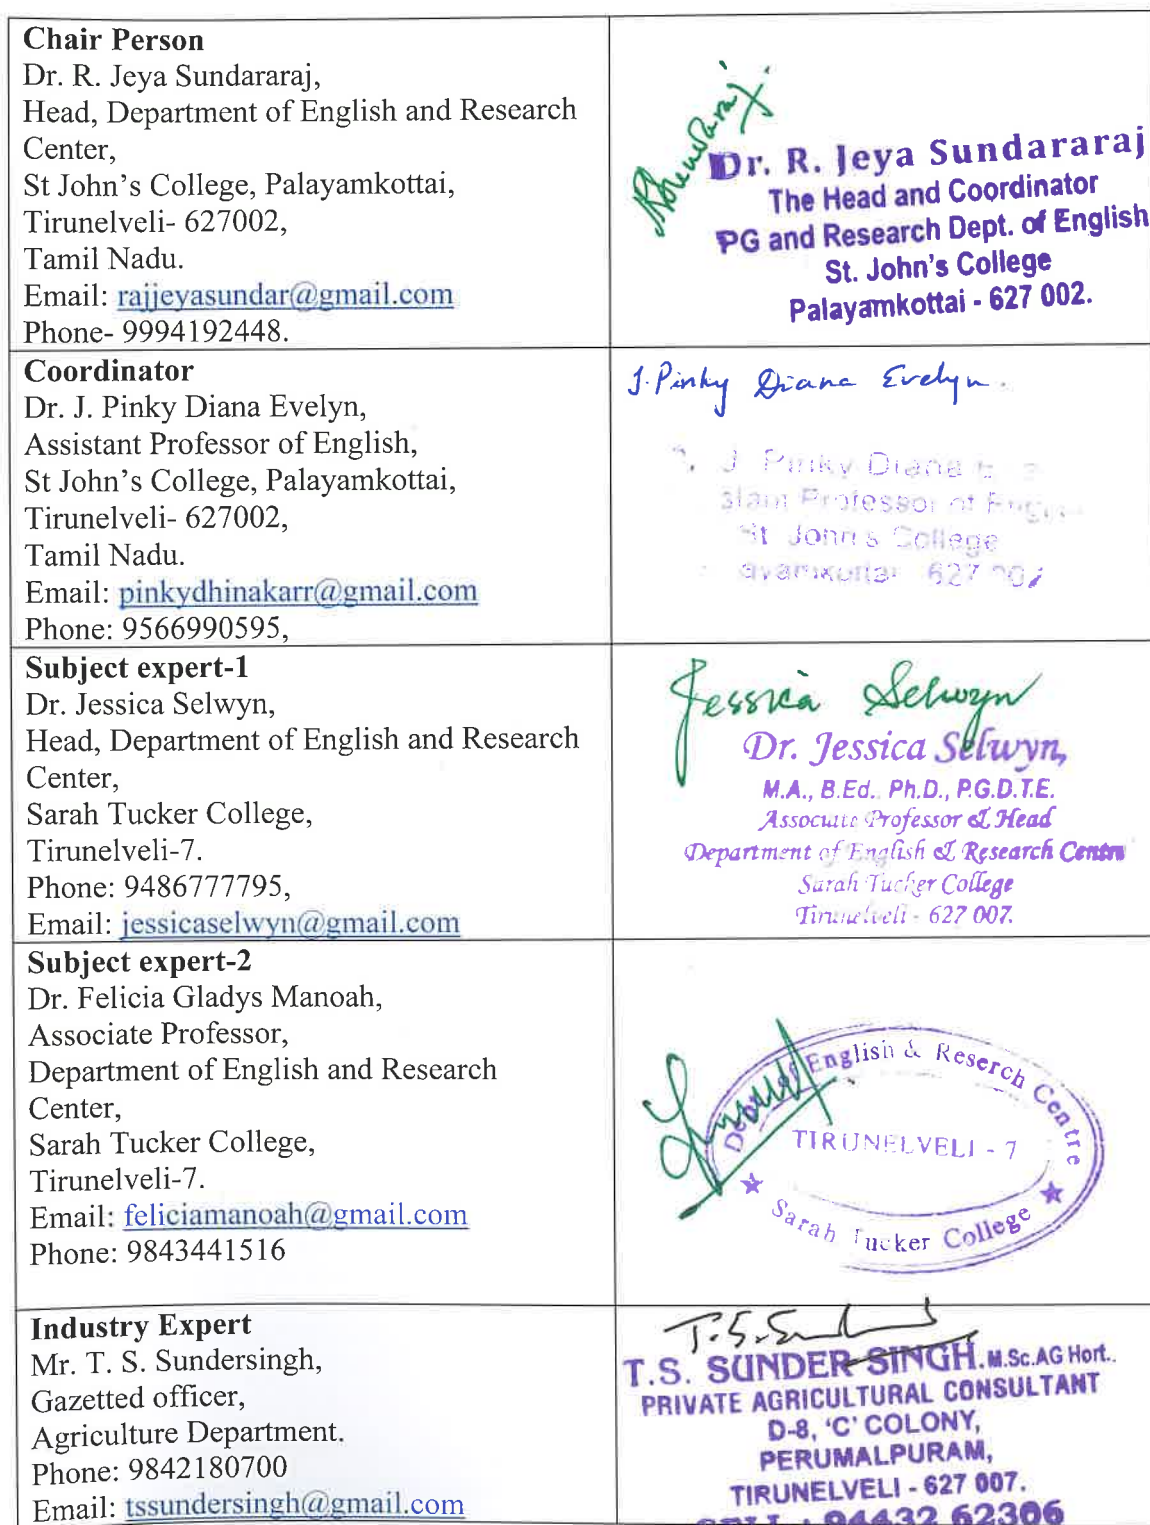 Chair Person
Dr. R. Jeya Sundararaj,
Head, Department of English and Research
Center,
St John's College, Palayamkottai,
Tirunelveli- 627002,
Tamil Nadu.
Email: rajjeyasundar@gmail.com
Phone- 9994192448.
Dr. R. Jeya Sundararaj
The Head and Coordinator
PG and Research Dept. of English
St. John's College
Palayamkottai - 627 002.
Coordinator
Dr. J. Pinky Diana Evelyn,
Assistant Professor of English,
St John's College, Palayamkottai,
Tirunelveli- 627002,
Tamil Nadu.
Email: pinkydhinakarr@gmail.com
Phone: 9566990595,
J. Pinky Diana Evelyn.
J Pinky Diana
Professor of
St John's College
627
Subject expert-1
Dr. Jessica Selwyn,
Head, Department of English and Research
Center,
Sarah Tucker College,
Tirunelveli-7.
Phone: 9486777795,
Email: jessicaselwyn@gmail.com
Jessica Selwyn
Dr. Jessica Selwyn,
M.A., B.Ed., Ph.D., P.G.D.T.E.
Associate Professor & Head
Department of English & Research Centre
Sarah Tucker College
Tirunelveli - 627 007.
Subject expert-2
Dr. Felicia Gladys Manoah,
Associate Professor,
Department of English and Research
Center,
Sarah Tucker College,
Tirunelveli-7.
Email: feliciamanoah@gmail.com
Phone: 9843441516
Dept. of English & Reserch Centre
TIRUNELVELI - 7
Sarah Tucker College
Industry Expert
Mr. T. S. Sundersingh,
Gazetted officer,
Agriculture Department.
Phone: 9842180700
Email: tssundersingh@gmail.com
T.S. SUNDER SINGH. M.Sc.AG Hort..
PRIVATE AGRICULTURAL CONSULTANT
D-8, 'C' COLONY,
PERUMALPURAM,
TIRUNELVELI - 627 007.
CELL : 94432 62306